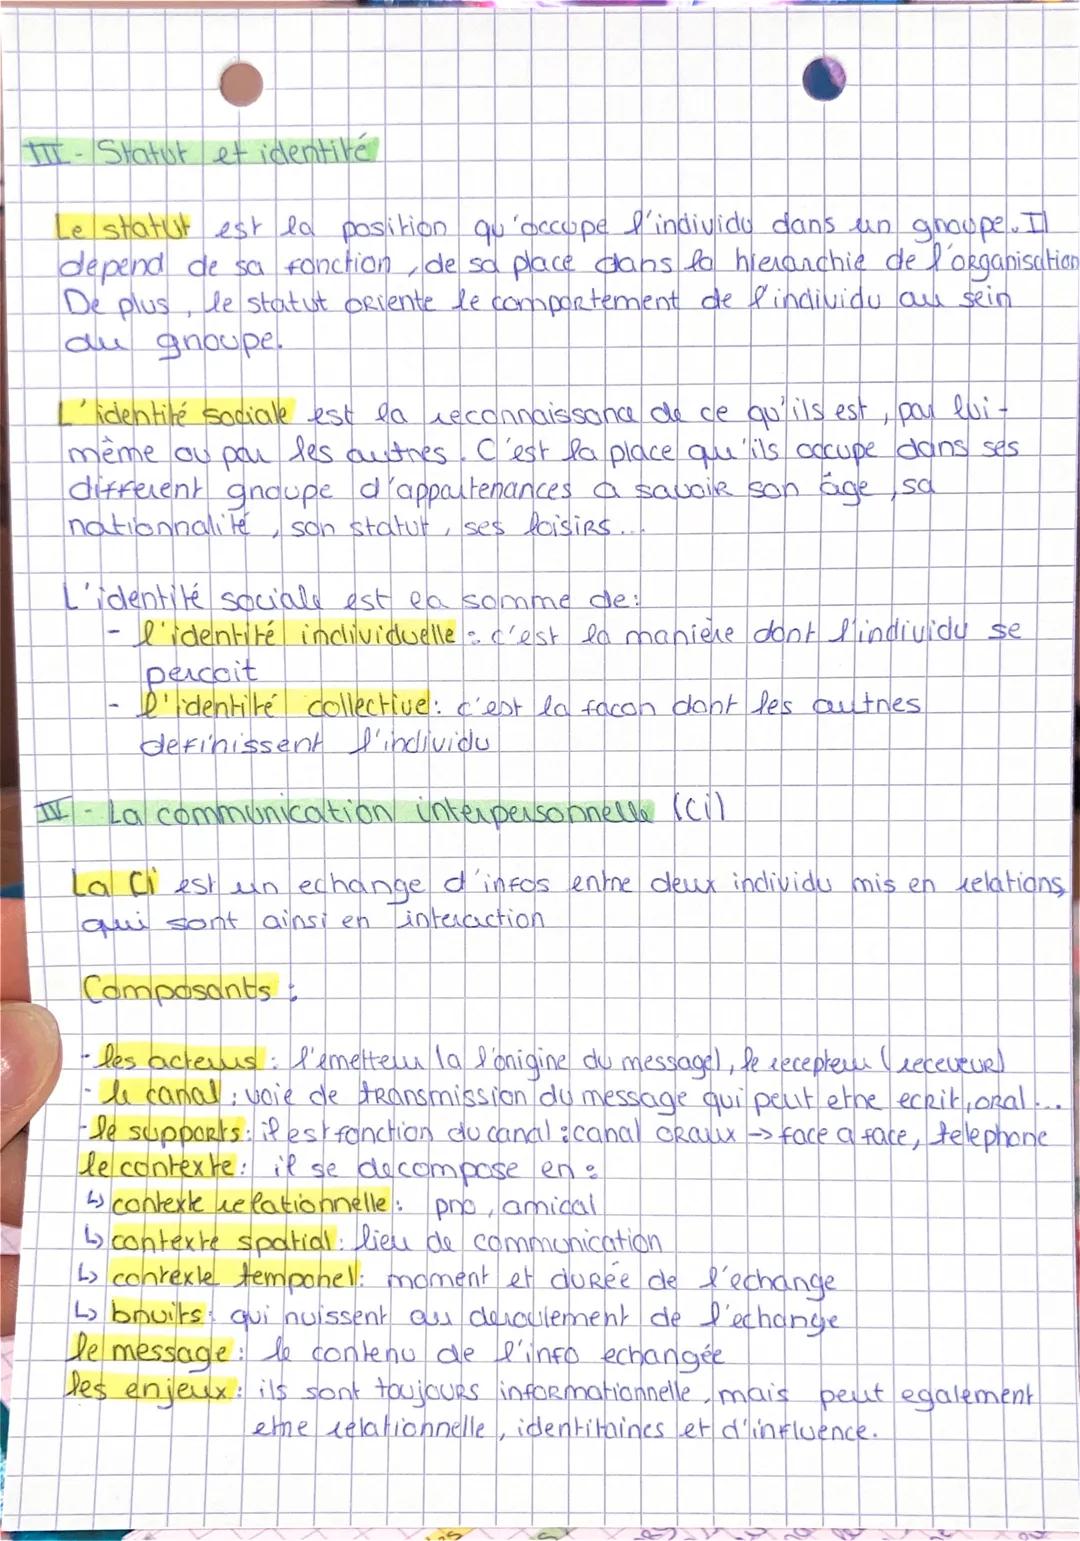 III - Statut et identité
Le statut est la position qu'occupe l'individu dans un groupe. Il
depend de sa fonction, de sa place dans la hierarchie de l'organisation
De plus, le statut oriente le comportement de l'individu au sein
du groupe.
L'identité sociale est la reconnaissance de ce qu'ils est, par lui-
même ou par les autres. C'est la place qu'ils occupe dans ses
different groupe d'appartenances a savoir son âge, sa
nationnalité, son statut, ses loisirs...
L'identité sociale est la somme de:
- l'identité individuelle : c'est la manière dont l'individu se
percoit
- l'identité collective : c'est la facon dont les autres
definissent l'individu
IV - La communication interpersonnelle (ci)
La Ci est un echange d'infos entre deux individu mis en relations,
qui sont ainsi en interaction
Composants :
- les acteurs : l'emetteur (a l'origine du message), le recepteur (receveur)
- le canal : voie de transmission du message qui peut etre ecrit, oral...
- le supports : il est fonction du canal : canal oraux → face a face, telephone
le contexte : il se decompose en :
↳ contexte relationnelle : pro, amical
↳ contexte spatial : lieu de communication
↳ contexte temporel : moment et durée de l'echange
↳ bruits : qui nuissent au deroulement de l'echange
le message : le contenu de l'info echangée
les enjeux : ils sont toujours informationnelle, mais peut egalement
etre relationnelle, identitaires et d'influence.